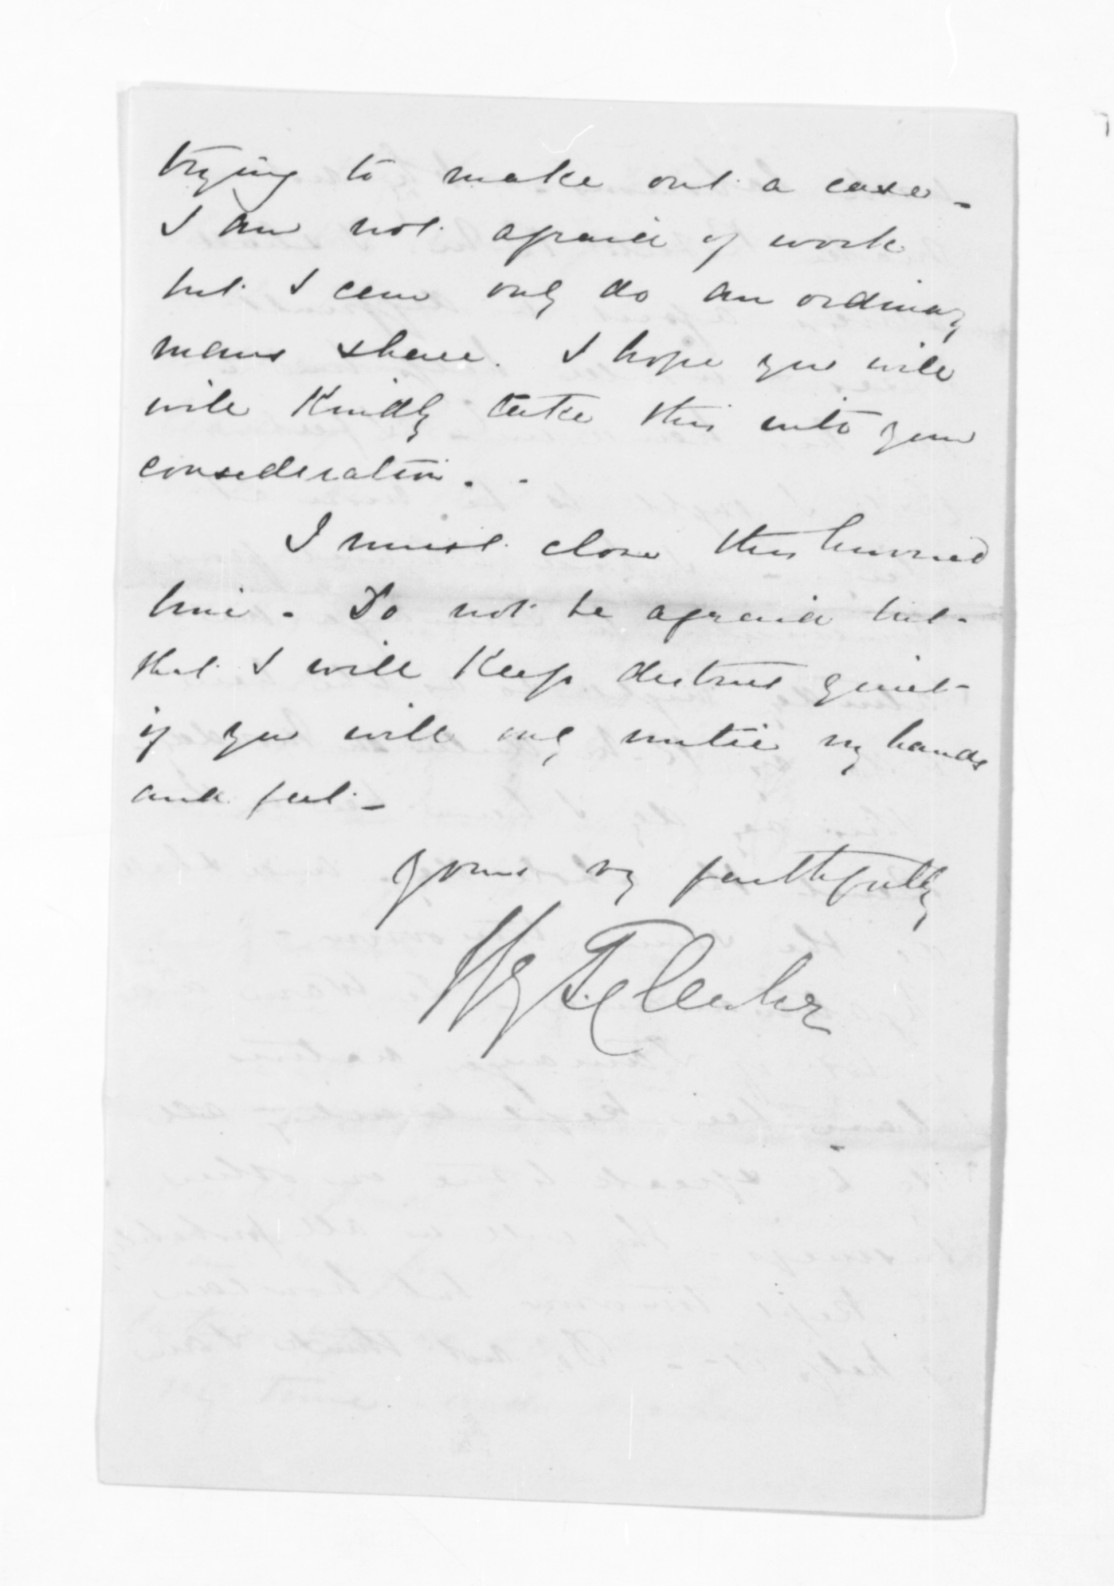 trying to make out a case -
I am not afraid of work
but I can only do an ordinary
mans share. I hope you will
will Kindly take this into your
consideration. -
I must close this hurried
line - Do not be afraid but
that I will Keep district quiet
if you will only untie my hands
and feet -
Yours vy faithfully